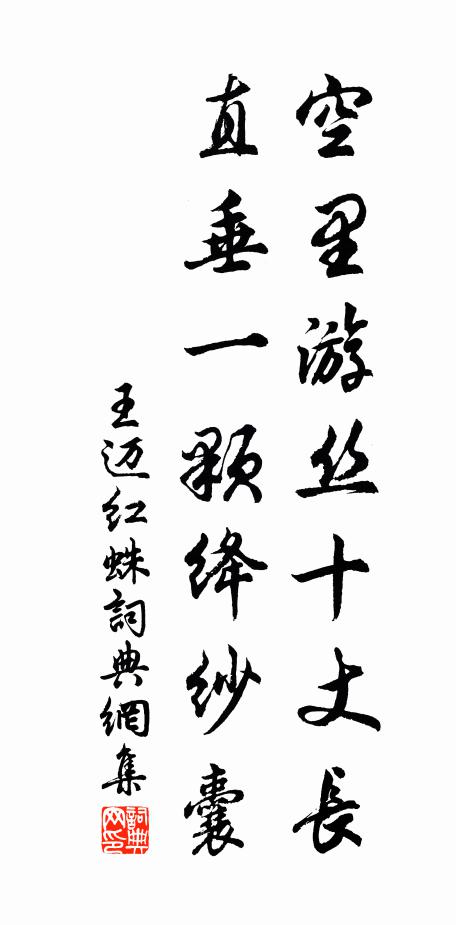 空里游丝十丈長
直垂一颗绛纱囊
王迈红蛛詞典網集
詞典网印